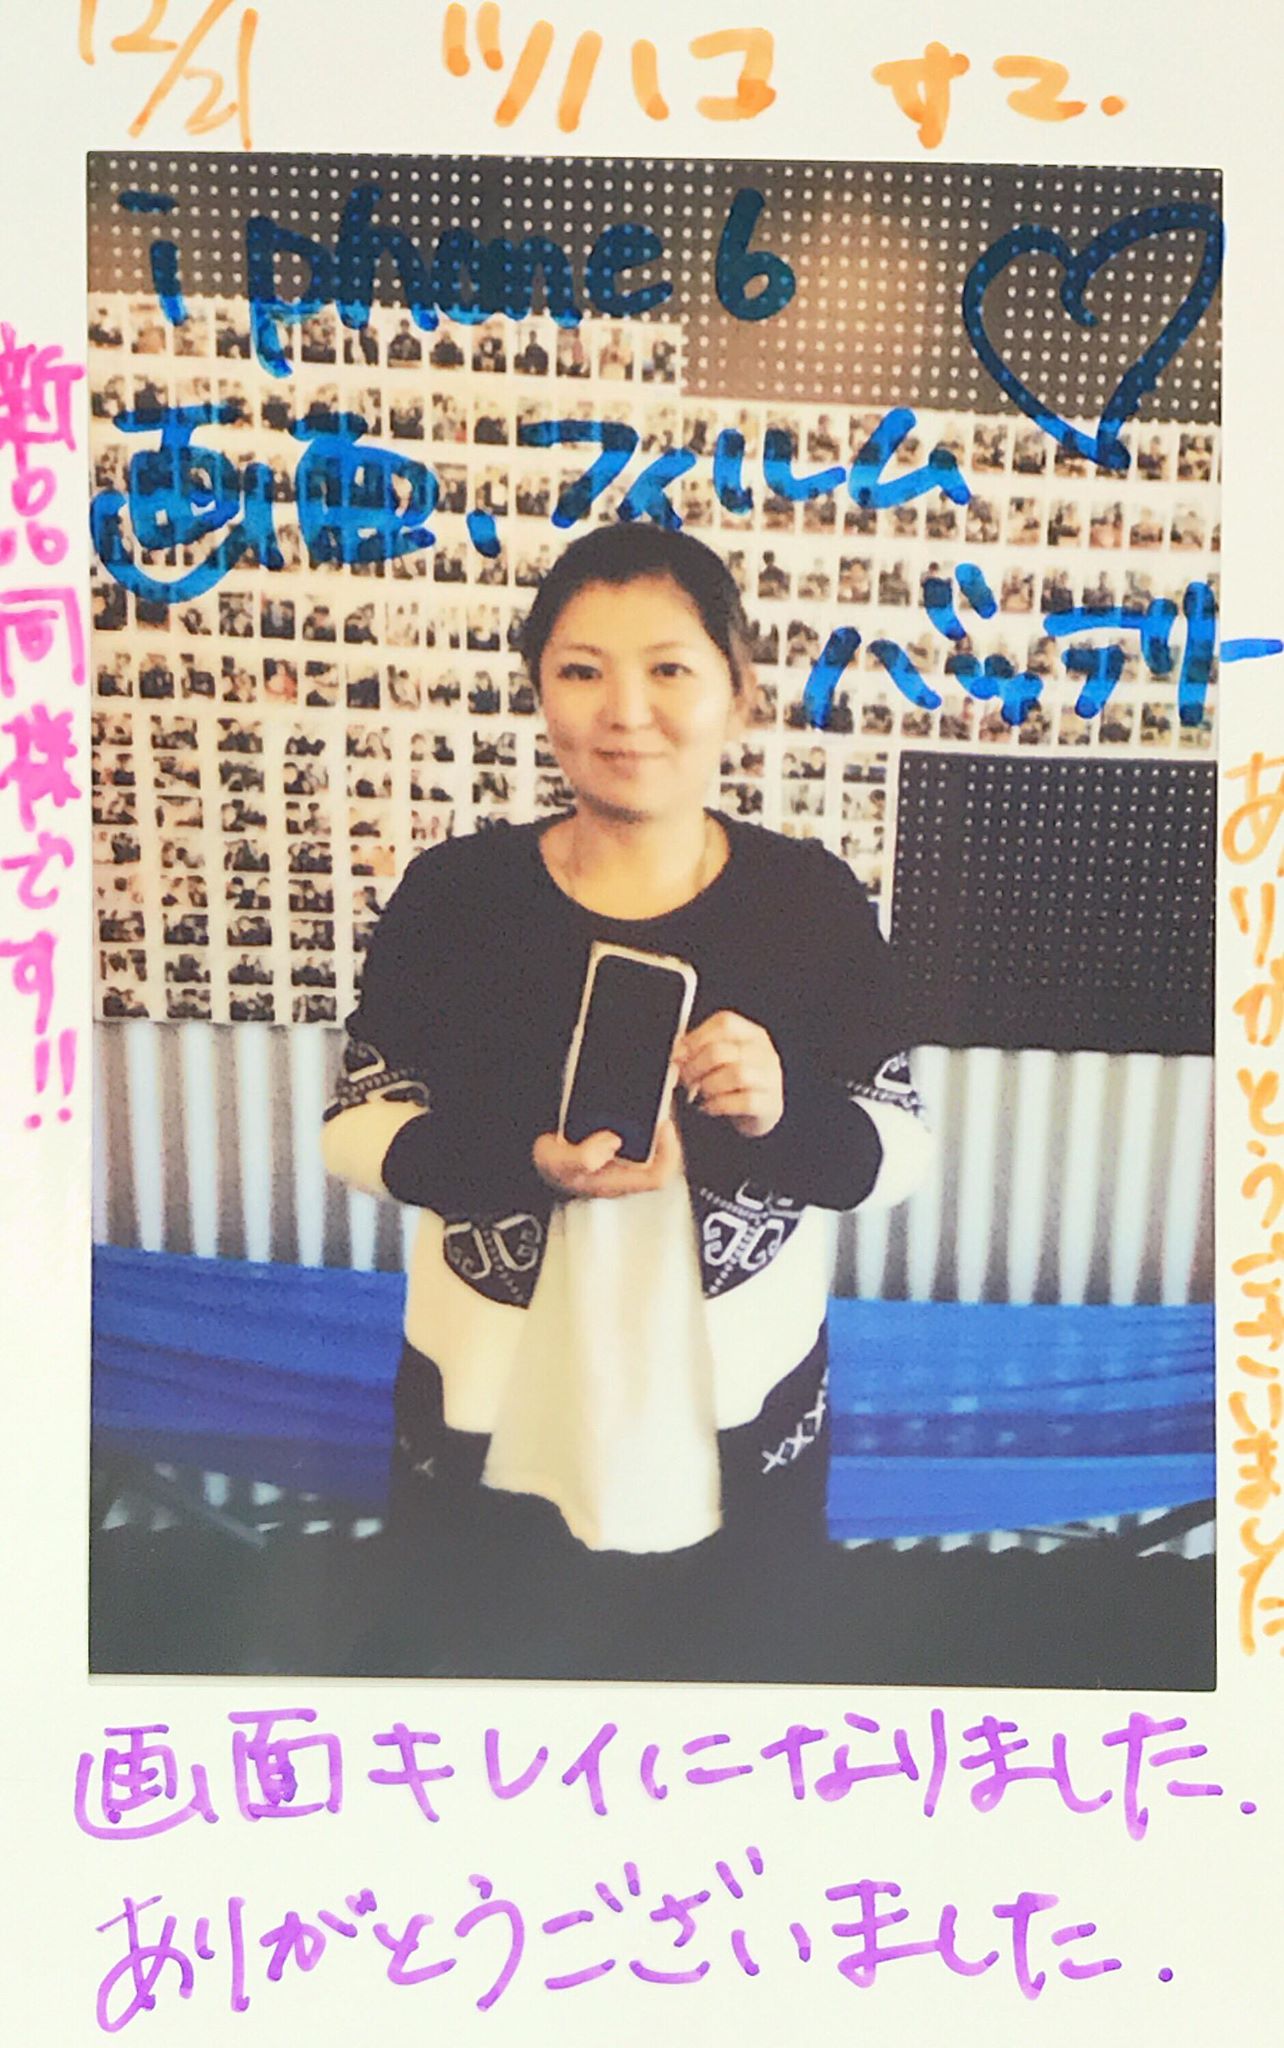 12/21 ツハコ すマ.
iphone6
画面、フィルム
バッテリー
新品同様です!!
ありがとうございました
画面キレイになりました.
ありがとうございました.